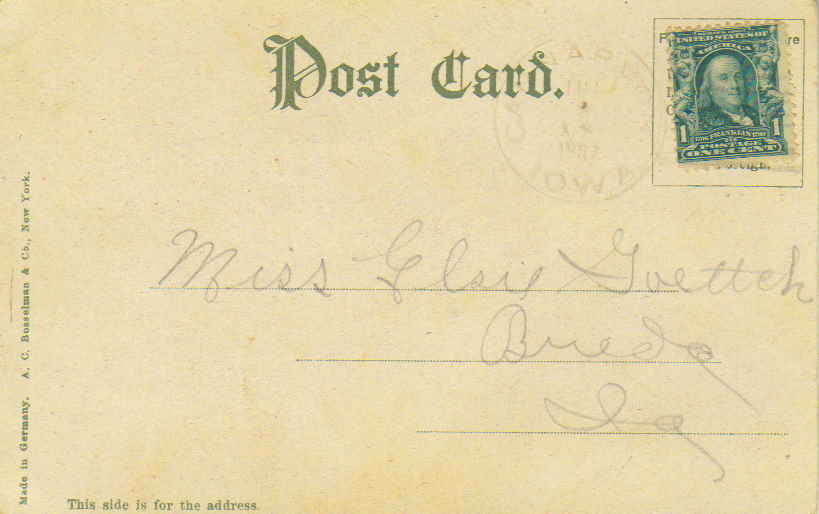 Post Card.
UNITED STATES OF
AMERICA
1 FRANKLIN 1
POSTAGE
ONE CENT
re
Foreign.
Miss Elsie Goettch
Breda
Ia
Made in Germany. A. C. Bosselman & Co., New York.
This side is for the address.